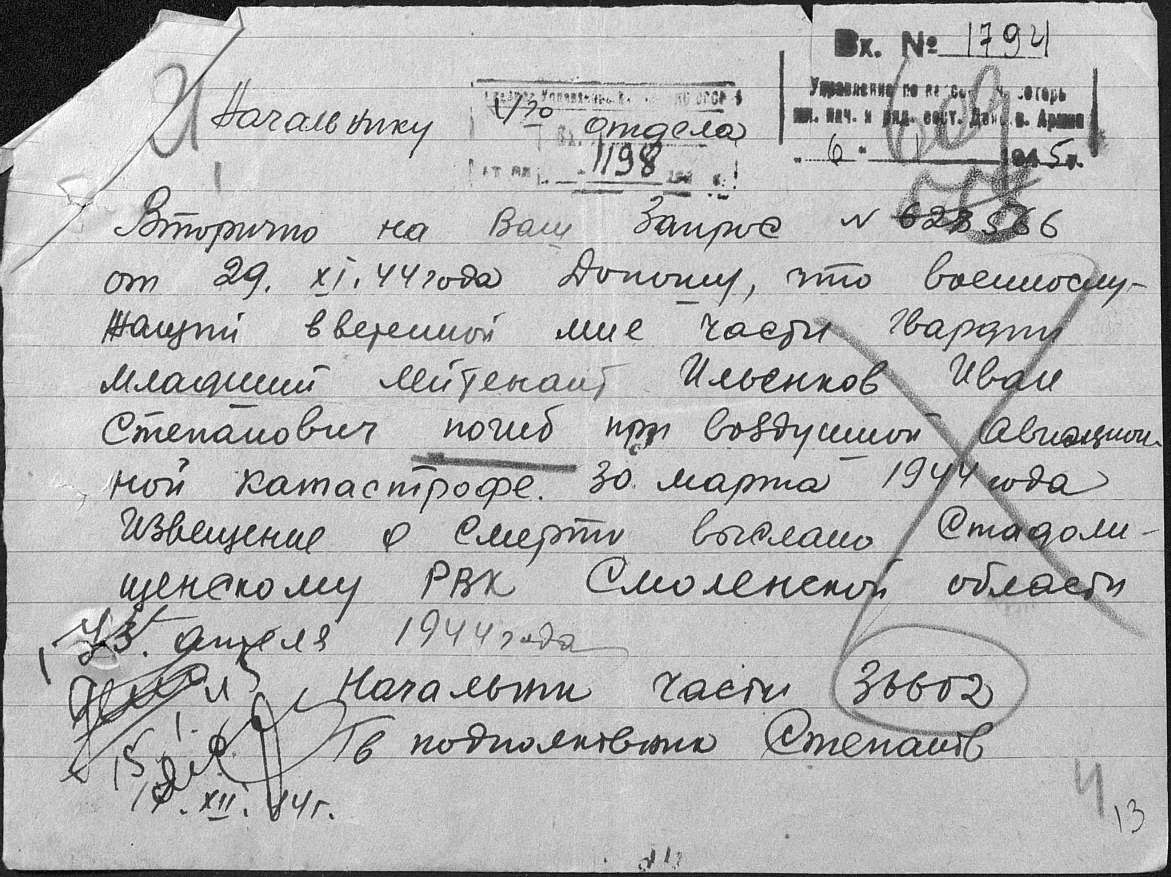 Вх. № 1794
Управление по персон. потерь
мл. нач. и ряд. сост. Дейс. в. Армии
6 1945 г.
609
Начальнику 4/го отдела
1198
Вторично на Ваш Запрос N 628566
от 29. XI. 44 года Доношу, что военнослу-
жащий вверенной мне части гвардии
младший лейтенант Ильенков Иван
Степанович погиб при воздушной авиацион-
ной катастрофе. 30 марта 1944 года
Извещение о смерти выслано Стадоли-
щенскому РВК Смоленской области
23. апреля 1944 года
Начальник части 36602
Гв подполковник Степанов
15. XII. 44 г.
4
13